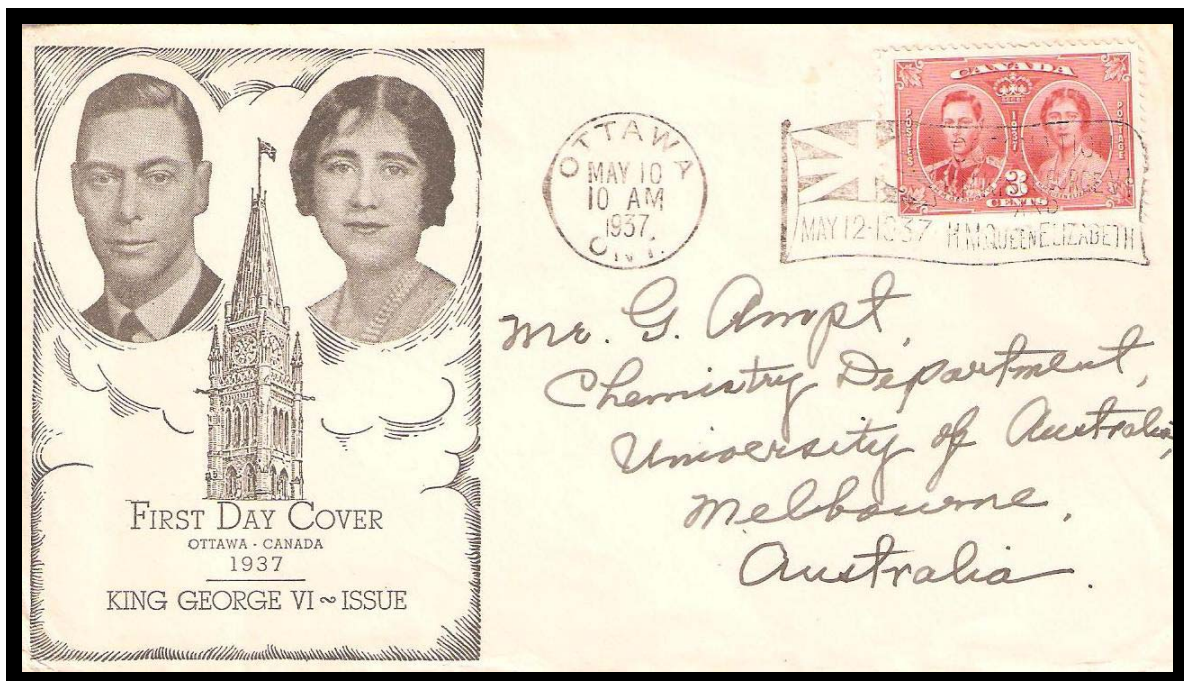 FIRST DAY COVER
OTTAWA - CANADA
1937
KING GEORGE VI ~ ISSUE
OTTAWA
MAY 10
10 AM
1937
ONT.
CANADA
POSTES
1937
POSTAGE
3
CENTS
GEORGE VI
AND
MAY 12-1937 H.M.QUEEN ELIZABETH
Mr. G. Ampt
Chemistry Department,
University of Australia,
Melbourne,
Australia.